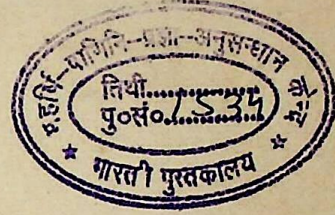 महर्षि--पाणिनि--प्रज्ञा--अनुसन्धान केन्द्र
तिथी..............
पु०सं०.1534
* भारती पुस्तकालय *